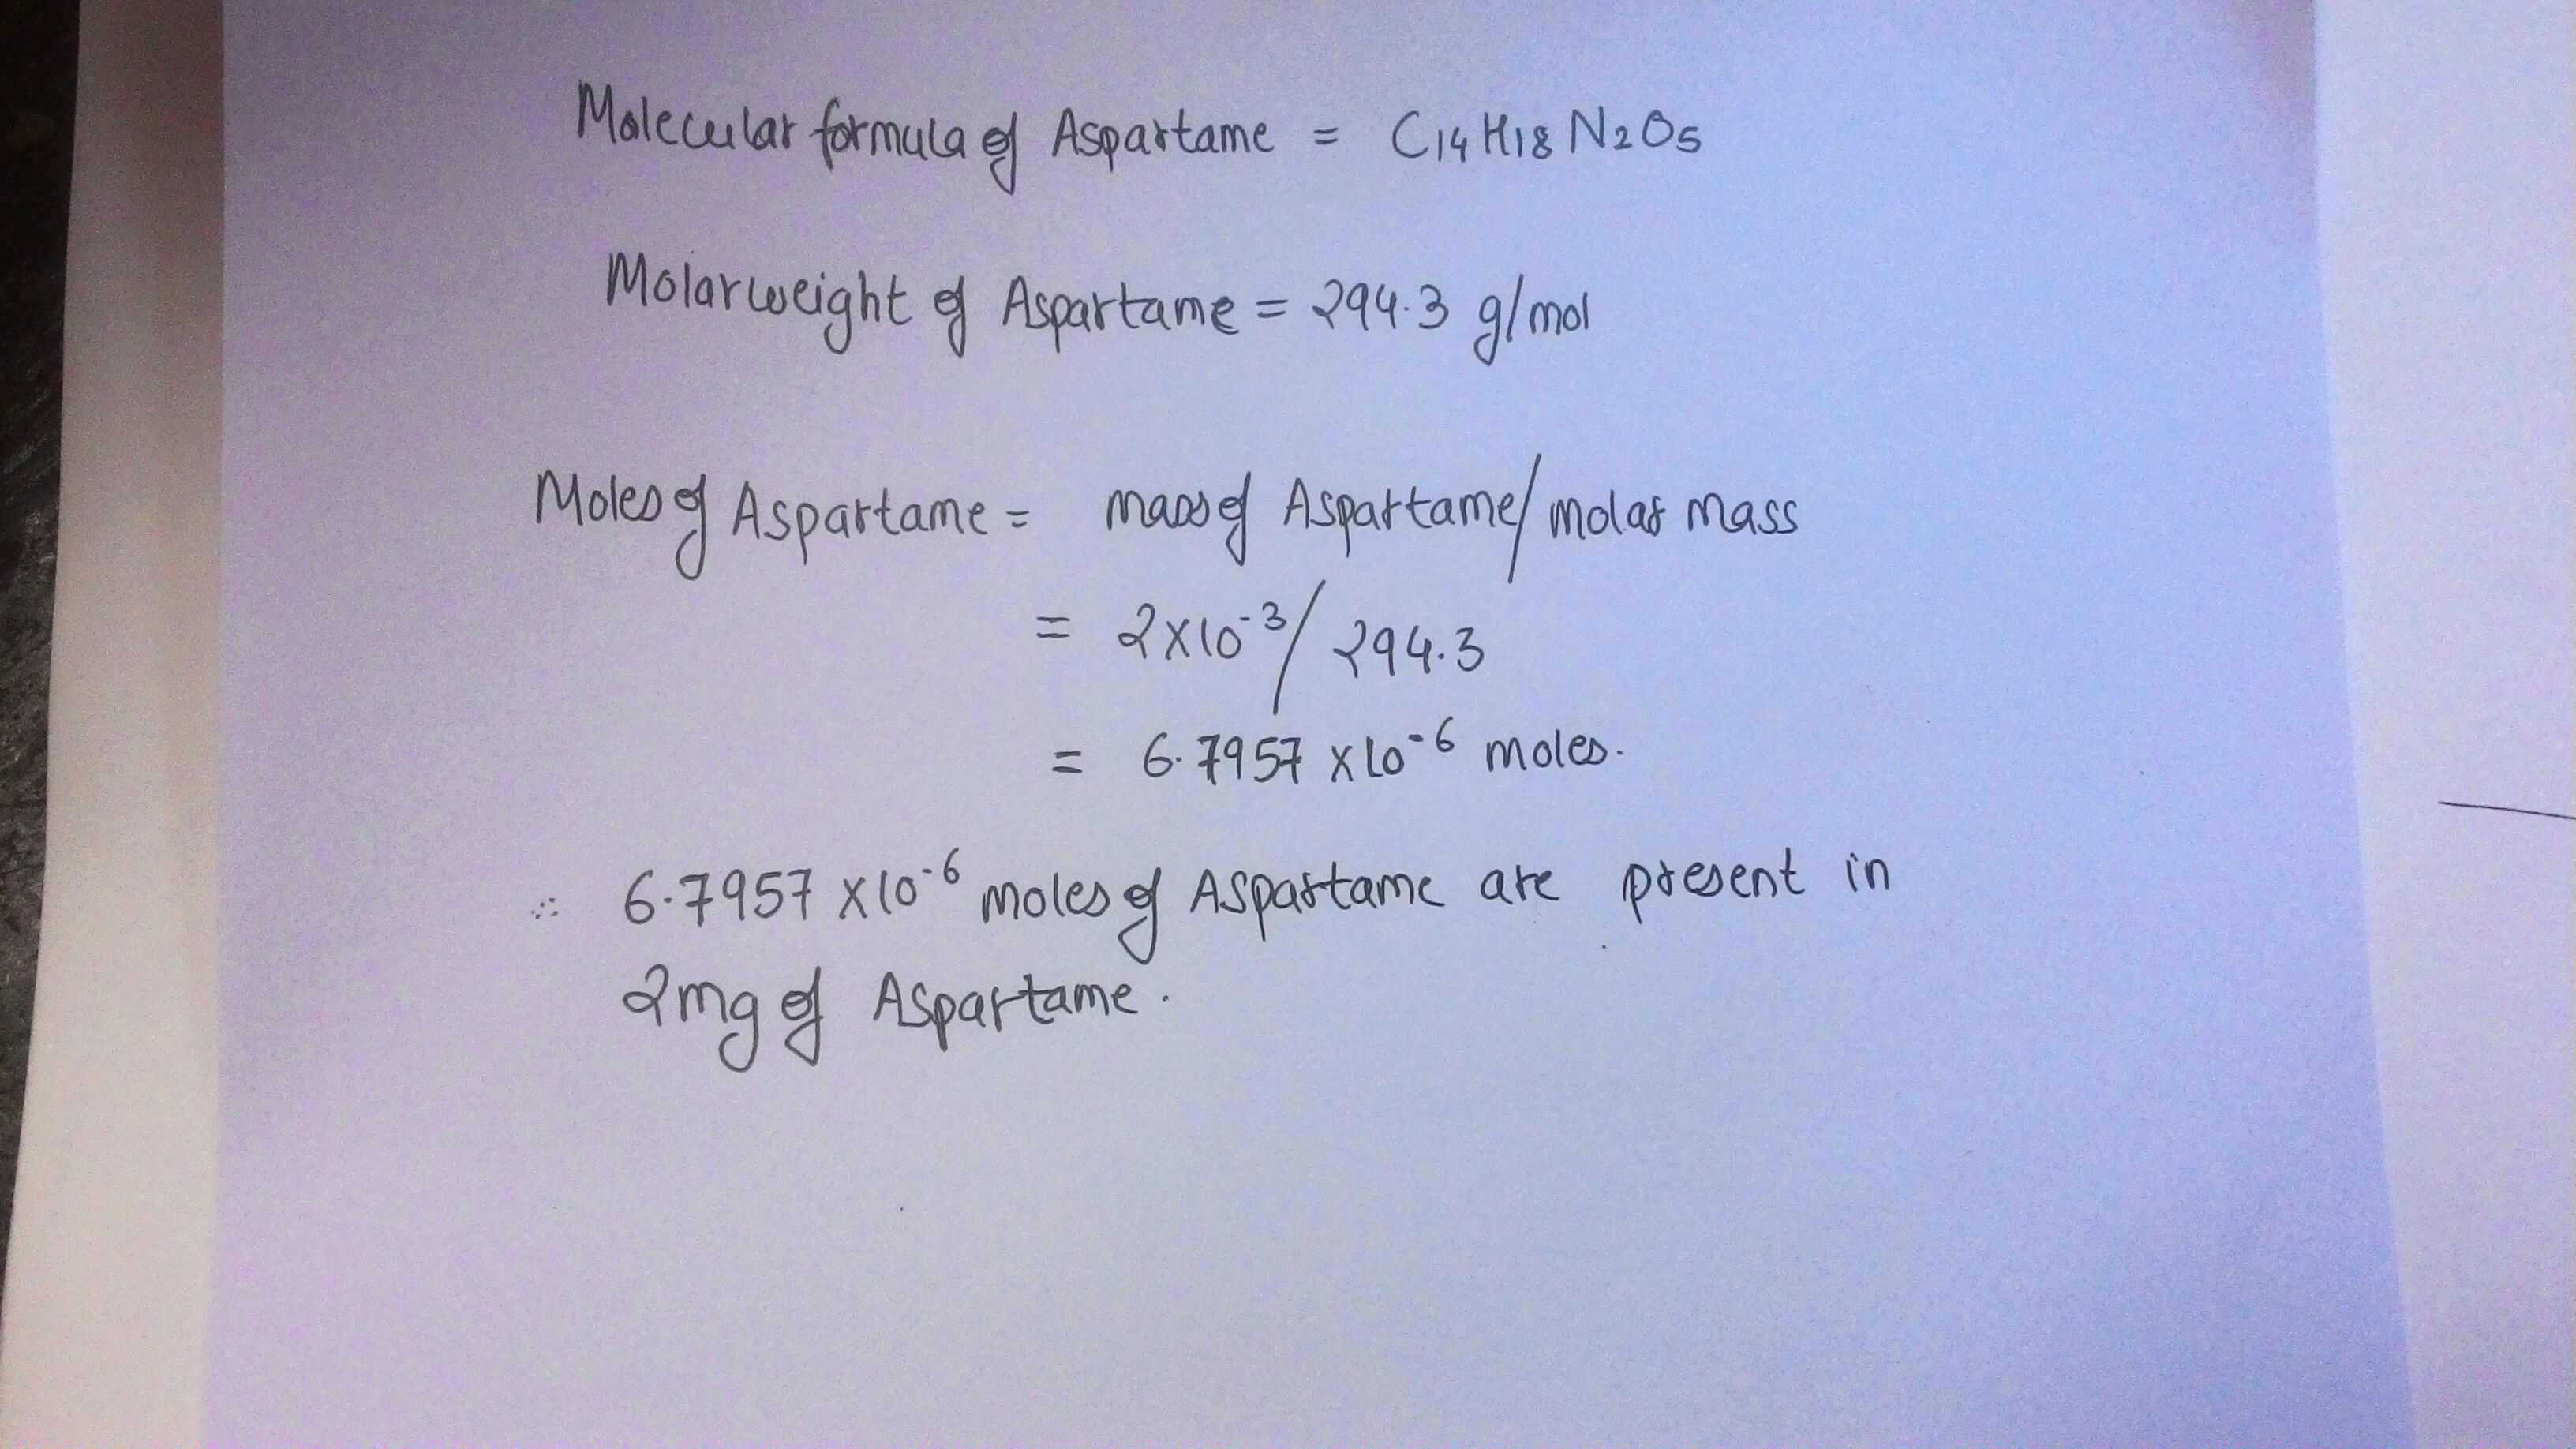 Molecular formula of Aspartame = C14H18N2O5
Molar weight of Aspartame = 294.3 g/mol
Moles of Aspartame = mass of Aspartame/molar mass
= 2×10⁻³/294.3
= 6.7957 ×10⁻⁶ moles.
∴ 6.7957 ×10⁻⁶ moles of Aspartame are present in
2mg of Aspartame.